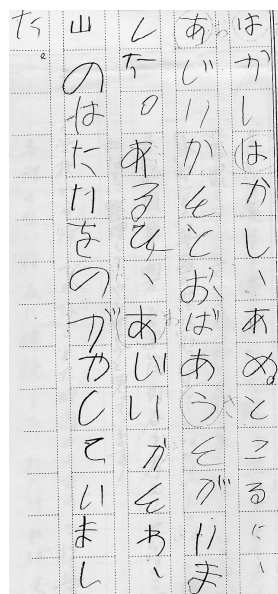 はかしはかし、あぬとこるに、
あじいかんとおばあうんがいま
した。あるひ、あじいかんわ、
山のはたけをのがやしていまし
た。